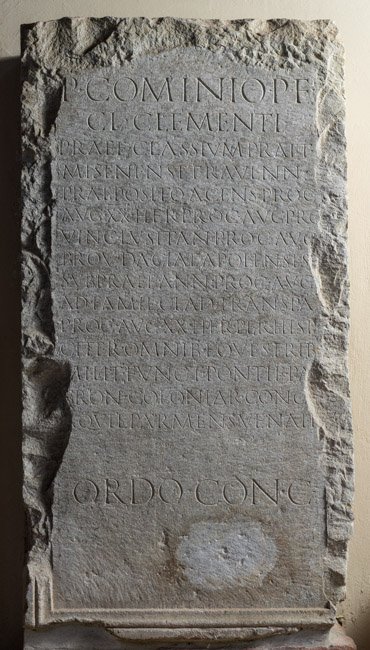 P COMINIO P F
CL CLEMENTI
PRAEF CLASSIVM PRAET
MISENENSI ET RAVENN
PRAEPOSITO AGENS PROC
AVG XX HER PROC AVG PRO
VINC LVSITAN PROC AVG
PROV DACIAE APOLENSES
SVBPRAEF ANN PROC AVG
AD FAMIL GLAD TRANSPA
PROC AVG XX HER PER HISP
ITER OMNIB EQVESTRIB
MILIT FVNCT PONTIFI
COLONIAR CONC
PARMENS VENAF
ORDO CONC